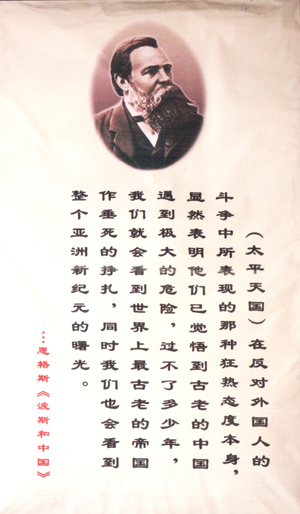 （太平天国）在反对外国人的
斗争中所表现的那种狂热态度本身，
显然表明他们已觉悟到古老的中国
遇到极大的危险，过不了多少年，
我们就会看到世界上最古老的帝国
作垂死的挣扎，同时我们也会看到
整个亚洲新纪元的曙光。
…恩格斯《波斯和中国》